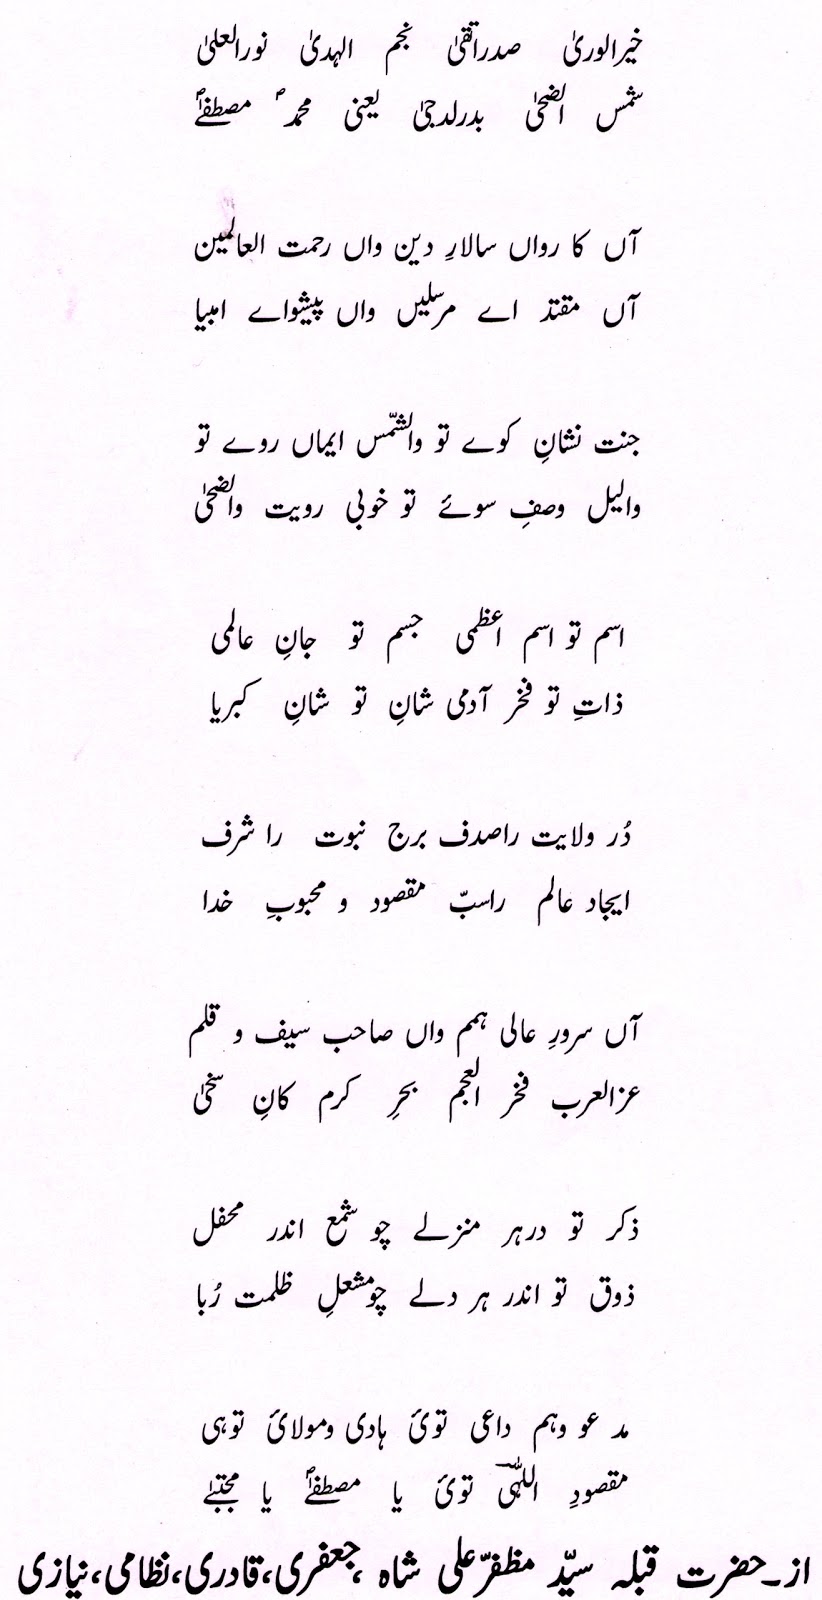 خیرالوریٰ صدراتقیٰ نجم الہدیٰ نورالعلیٰ
شمس الضحیٰ بدرلدجیٰ یعنی محمدؐ مصطفےٰؐ
آں کا رواں سالارِ دین واں رحمت العالمین
آں مقتد اے مرسلیں واں پیشواے امبیا
جنت نشانِ کوے تو والشّمس ایماں روے تو
والیل وصفِ سوئے تو خوبی رویت والضحیٰ
اسم تو اسم اعظمی جسم تو جانِ عالمی
ذاتِ تو فخر آدمی شانِ تو شانِ کبریا
دُر ولایت راصدف برج نبوت را شرف
ایجاد عالم راسبّ مقصود و محبوبِ خدا
آں سرورِ عالی ہمم واں صاحب سیف و قلم
عزالعرب فخر العجم بحرِ کرم کانِ سخیٰ
ذکر تو درہر منزلے چو شمع اندر محفل
ذوق تو اندر ہر دلے چومشعلِ ظلمت رُبا
مد عو وہم داعی توئ ہادی ومولائ توہی
مقصودِ اللہٰی توئ یا مصطفےٰؐ یا مجتبےٰ
از۔حضرت قبلہ سیّد مظفرّعلی شاہ ،جعفری،قادری،نظامی،نیازی